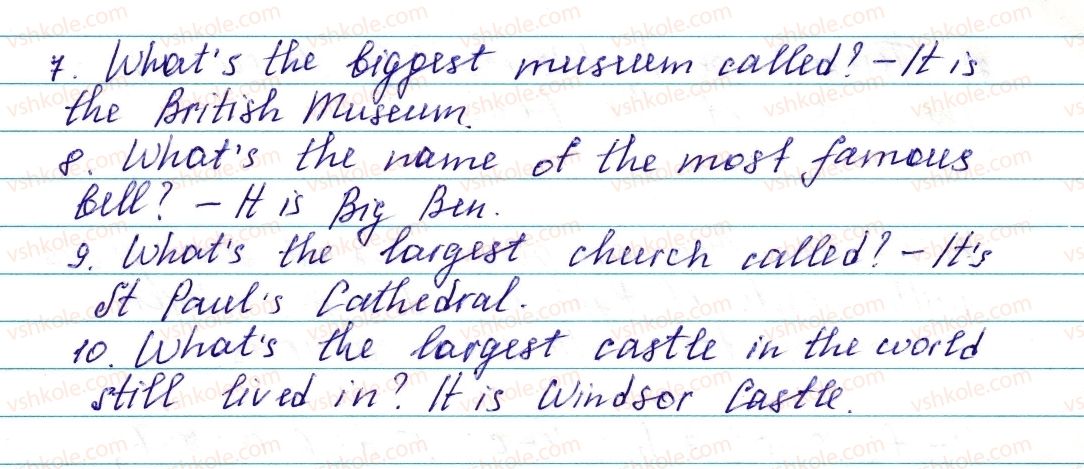 7. What's the biggest museum called? – It is
the British Museum.
8. What's the name of the most famous
bell? – It is Big Ben.
9. What's the largest church called? – It's
St Paul's Cathedral.
10. What's the largest castle in the world
still lived in? It is Windsor Castle.